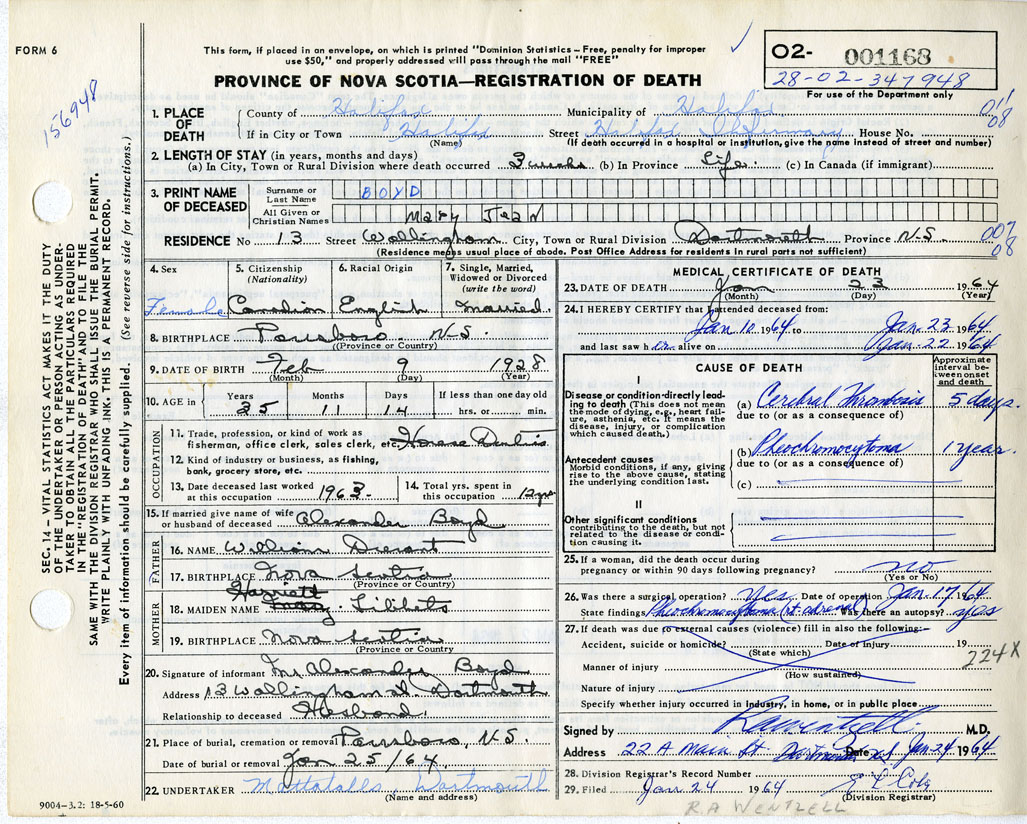 FORM 6
This form, if placed in an envelope, on which is printed "Dominion Statistics—Free, penalty for improper
use $50," and properly addressed will pass through the mail "FREE"
PROVINCE OF NOVA SCOTIA—REGISTRATION OF DEATH
02- 001168
28-02-347948
For use of the Department only
156948
1. PLACE OF DEATH County of Halifax Municipality of Halifax 011
If in City or Town Halifax Street Halifax Infirmary House No. 08
(Name) (If death occurred in a hospital or institution, give the name instead of street and number)
2. LENGTH OF STAY (in years, months and days)
(a) In City, Town or Rural Division where death occurred 3 weeks (b) In Province Life (c) In Canada (if immigrant)
3. PRINT NAME OF DECEASED Surname or Last Name BOYD
All Given or Christian Names Mary Jean
RESIDENCE No 13 Street City, Town or Rural Division Dartmouth Province N.S. 007
(Residence means usual place of abode. Post Office Address for residents in rural parts not sufficient) 08
4. Sex 5. Citizenship (Nationality) 6. Racial Origin 7. Single, Married, Widowed or Divorced (write the word)
Female Canadian English Married
8. BIRTHPLACE Parrsboro N.S.
(Province or Country)
9. DATE OF BIRTH Feb 9 1928
(Month) (Day) (Year)
10. AGE in Years Months Days If less than one day old
35 11 14 hrs. or min.
OCCUPATION
11. Trade, profession, or kind of work as
fisherman, office clerk, sales clerk, etc.
12. Kind of industry or business, as fishing,
bank, grocery store, etc.
13. Date deceased last worked at this occupation 1963 14. Total yrs. spent in this occupation 12 yrs
15. If married give name of wife or husband of deceased Alexander Boyd
FATHER
16. NAME William
17. BIRTHPLACE Nova Scotia
(Province or Country)
MOTHER
Harriett
18. MAIDEN NAME
19. BIRTHPLACE Nova Scotia
(Province or Country)
20. Signature of informant Mr Alexander Boyd
Address 13 Dartmouth
Relationship to deceased Husband
21. Place of burial, cremation or removal Parrsboro, N.S.
Date of burial or removal Jan 25/64
22. UNDERTAKER Mattatalls, Dartmouth
(Name and address)
9004—3.2: 18-5-60
SEC. 14 — VITAL STATISTICS ACT MAKES IT THE DUTY
OF THE UNDERTAKER OR PERSON ACTING AS UNDER-
TAKER TO OBTAIN ALL THE PARTICULARS REQUIRED
IN THE "REGISTRATION OF DEATH" AND TO FILE THE
SAME WITH THE DIVISION REGISTRAR WHO SHALL ISSUE THE BURIAL PERMIT.
WRITE PLAINLY WITH UNFADING INK. THIS IS A PERMANENT RECORD.
Every item of information should be carefully supplied. (See reverse side for instructions.)
MEDICAL CERTIFICATE OF DEATH
23. DATE OF DEATH Jan 23 1964
(Month) (Day) (Year)
24. I HEREBY CERTIFY that I attended deceased from:
Jan 10 1964 to Jan 23 1964
and last saw h er alive on Jan 22 1964
CAUSE OF DEATH
Approximate interval between onset and death
I
Disease or condition directly leading to death (This does not mean the mode of dying, e.g., heart failure, asthenia, etc. It means the disease, injury, or complication which caused death.)
(a) Cerebral Thrombosis 5 days
due to (or as a consequence of)
Antecedent causes
Morbid conditions, if any, giving rise to the above cause, stating the underlying condition last.
(b) Pheochromocytoma 1 year
due to (or as a consequence of)
(c)
II
Other significant conditions
contributing to the death, but not related to the disease or condition causing it.
25. If a woman, did the death occur during
pregnancy or within 90 days following pregnancy? no
(Yes or No)
26. Was there a surgical operation? yes Date of operation Jan 17 1964
State findings Pheochromocytoma (rt adrenal) Was there an autopsy? yes
27. If death was due to external causes (violence) fill in also the following:—
Accident, suicide or homicide? Date of injury 19
(State which) 224X
Manner of injury
(How sustained)
Nature of injury
Specify whether injury occurred in industry, in home, or in public place
Signed by RAWentzell M.D.
Address 22 A Main St Dartmouth NS Date Jan 24 1964
28. Division Registrar's Record Number
29. Filed Jan 24 1964
(Division Registrar)
R.A WENTZELL